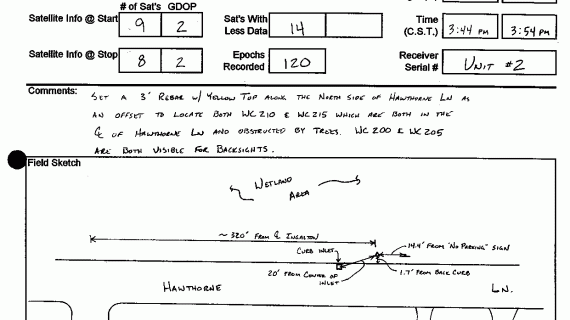 # of Sat's GDOP
Satellite Info @ Start 9 2 Sat's With Less Data 14 Time (C.S.T.) 3:44 PM 3:54 PM
Satellite Info @ Stop 8 2 Epochs Recorded 120 Receiver Serial # UNIT #2
Comments: SET A 3' REBAR W/ YELLOW TOP ALONG THE NORTH SIDE OF HAWTHORNE LN AS
AN OFFSET TO LOCATE BOTH WC210 & WC215 WHICH ARE BOTH IN THE
℄ OF HAWTHORNE LN AND OBSTRUCTED BY TREES. WC200 & WC205
ARE BOTH VISIBLE FOR BACKSIGHTS.
Field Sketch
WETLAND
AREA
~ 320' FROM ℄ INGALTON
CURB INLET
14.4' FROM "NO PARKING" SIGN
20' FROM CENTER OF INLET
1.7' FROM BACK CURB
HAWTHORNE LN.